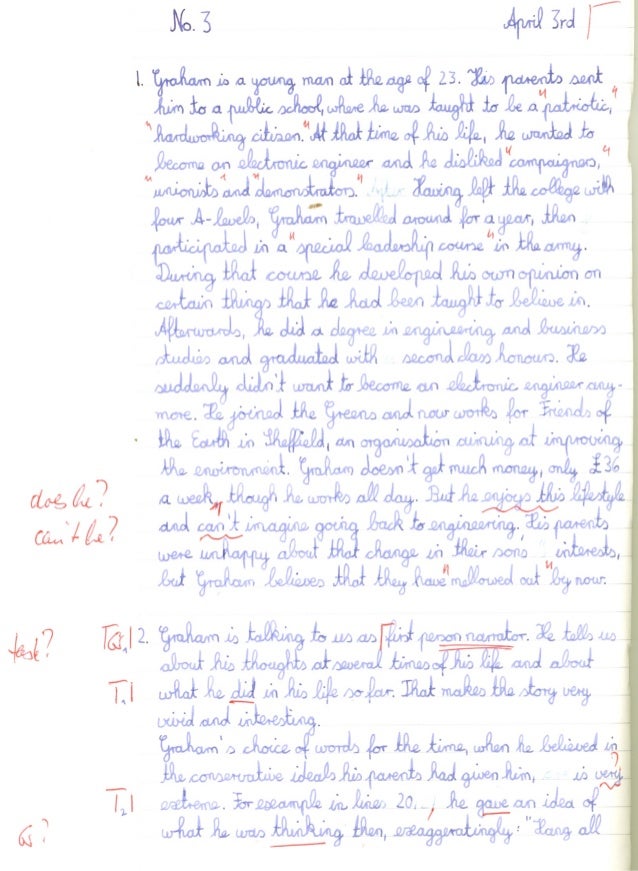 No. 3 April 3rd
1. Graham is a young man at the age of 23. His parents sent
him to a public school, where he was taught to be a "patriotic,"
"hardworking citizen." At that time of his life, he wanted to
become an electronic engineer and he disliked "campaigners,"
"unionists" and "demonstrators." Having left the college with
four A-levels, Graham travelled around for a year, then
participated in a "special leadership course" in the army.
During that course he developed his own opinion on
certain things that he had been taught to believe in.
Afterwards, he did a degree in engineering and business
studies and graduated with second class honours. He
suddenly didn't want to become an electronic engineer any-
more. He joined the Greens and now works for Friends of
the Earth in Sheffield, an organisation aiming at improving
the environment. Graham doesn't get much money, only £36
does he? a week, though he works all day. But he enjoys this lifestyle
can't he? and can't imagine going back to engineering. His parents
were unhappy about that change in their sons interests,
but Graham believes that they have "mellowed out" by now.
task? 2. Graham is talking to us as first person narrator. He tells us
about his thoughts at several times of his life and about
T1 what he did in his life so far. That makes the story very
vivid and interesting.
Graham's choice of words for the time, when he believed in
the conservative ideals his parents had given him, is very ?
T2 extreme. For example in lines 20..., he gave an idea of
G? what he was thinking then, exaggeratingly: "Hang all